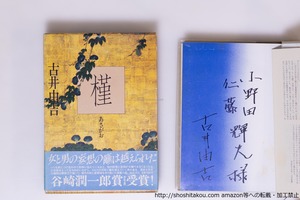 古井由吉
槿
あさがお
女と男の妄想の扉は越えられた
谷崎潤一郎賞!受賞!
小野田
仁藤 輝夫 様
古井由吉
@ https://shoshitakou.com amazon等への転載・加工禁止